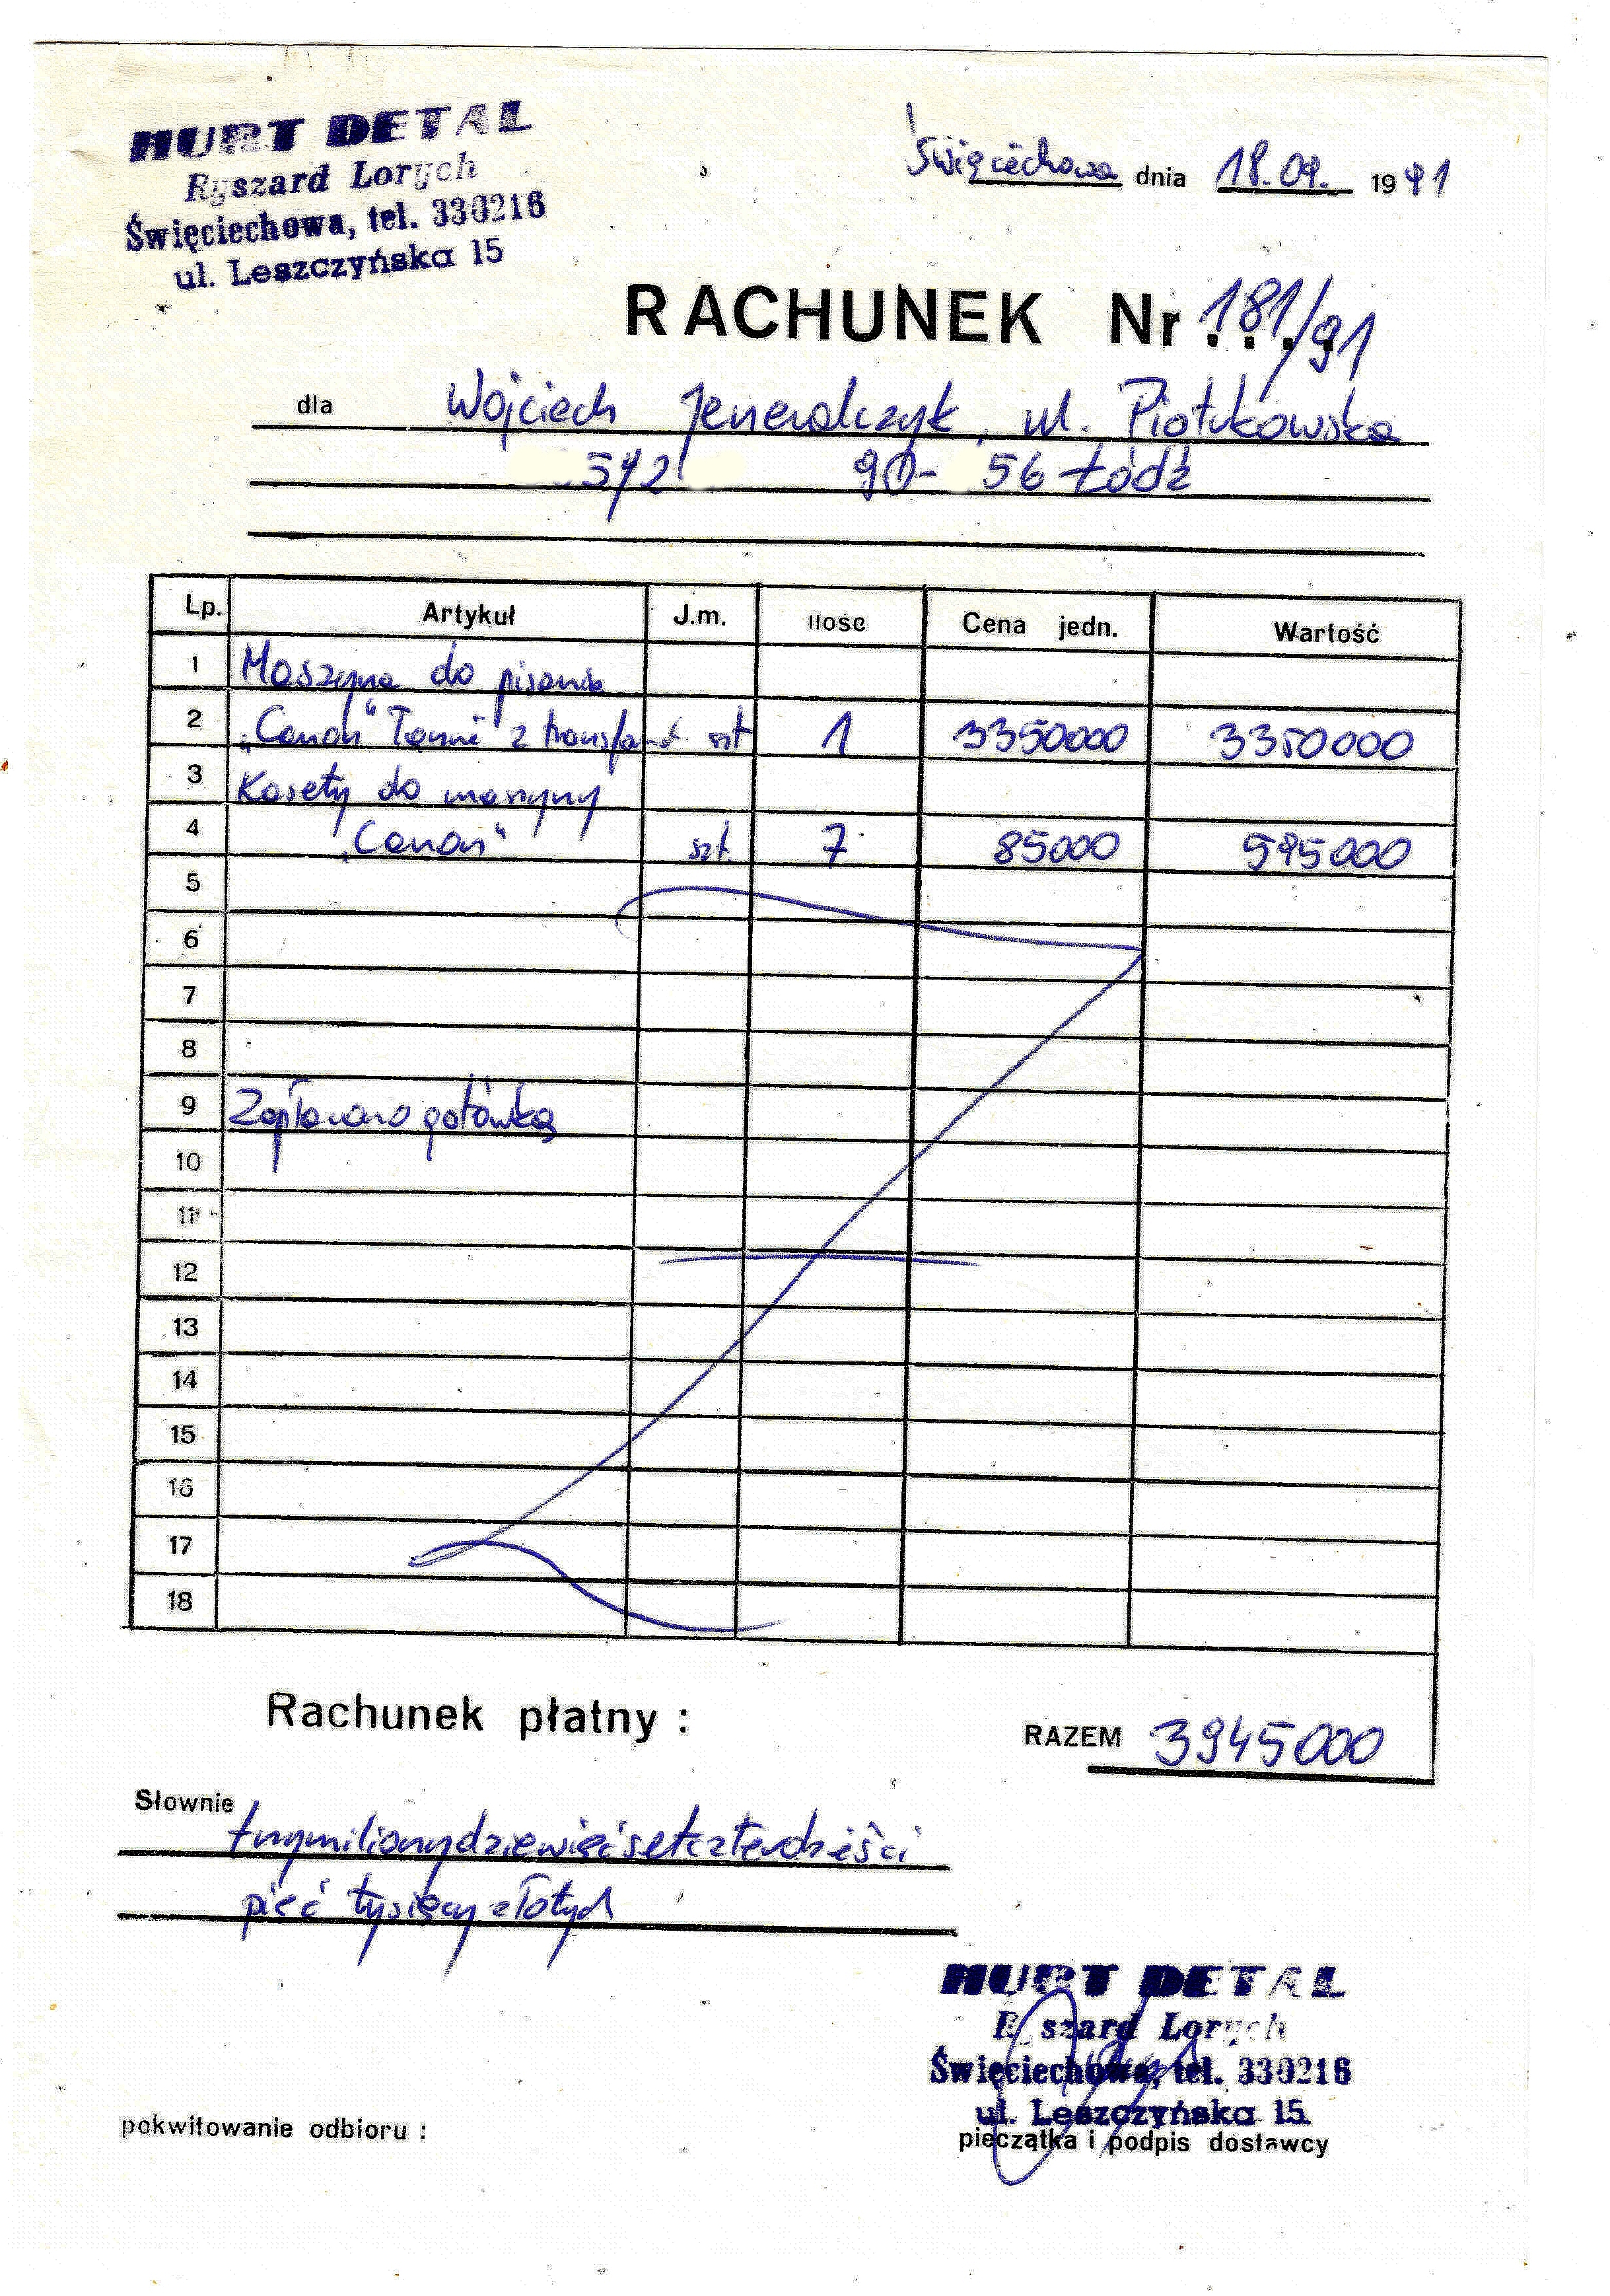 HURT DETAL
Ryszard Lorych
Święciechowa, tel. 330216
ul. Leszczyńska 15
Święciechowa dnia 18.09. 1991
RACHUNEK Nr 181/91
dla Wojciech Jeneralczyk, ul. Piotrkowska
90- 56 Łódź
Lp. Artykuł J.m. Ilość Cena jedn. Wartość
1 Maszyna do pisania
2 „Canon" z szt 1 3350000 3350000
3 Kasety do maszyny
4 „Canon" szt. 7 85000 595000
5
6
7
8
9 Zapłacono gotówką
10
11
12
13
14
15
16
17
18
Rachunek płatny :
RAZEM 3945000
Słownie
trzymilionydziewięćsetczterdzieści
pięć tysięcy złotych
HURT DETAL
Ryszard Lorych
Święciechowa, tel. 330216
ul. Leszczyńska 15
pokwitowanie odbioru :
pieczątka i podpis dostawcy